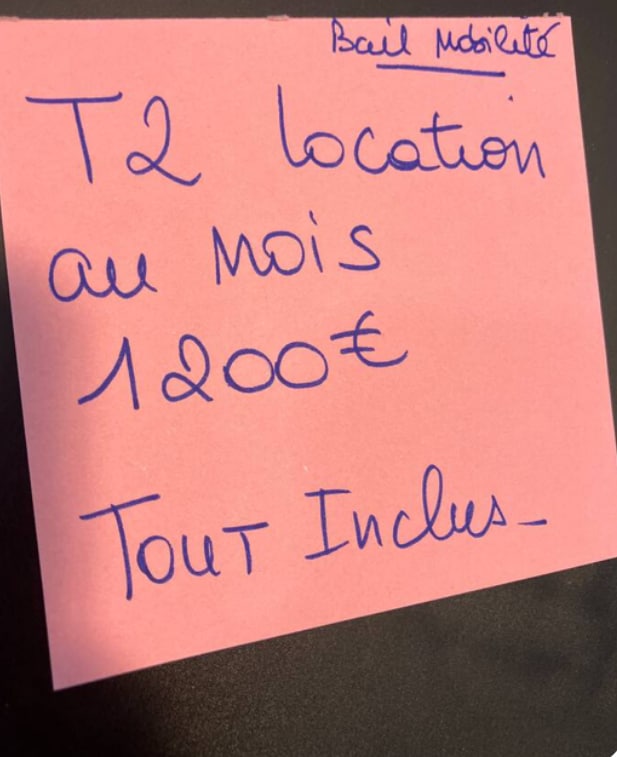 Bail Mobilité
T2 location
au mois
1200€
Tout Inclus_